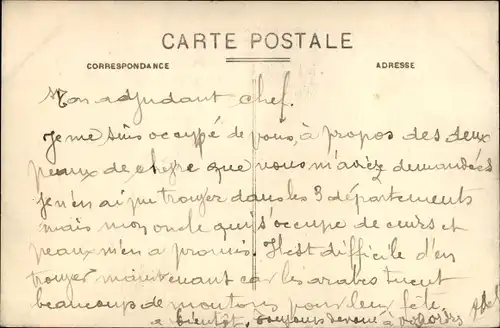 CARTE POSTALE
CORRESPONDANCE ADRESSE
Mon adjudant chef.
Je me suis occupé de vous, à propos des deux
peaux de chèvre que vous m'aviez demandées
je n'en ai pu trouver dans les 3 départements
mais mon oncle qui s'occupe de cuirs et
peaux m'en a promis. Il est difficile d'en
trouver maintenant car les arabes tuent
beaucoup de moutons pour leur fête.
a bientôt, toujours dévoué à